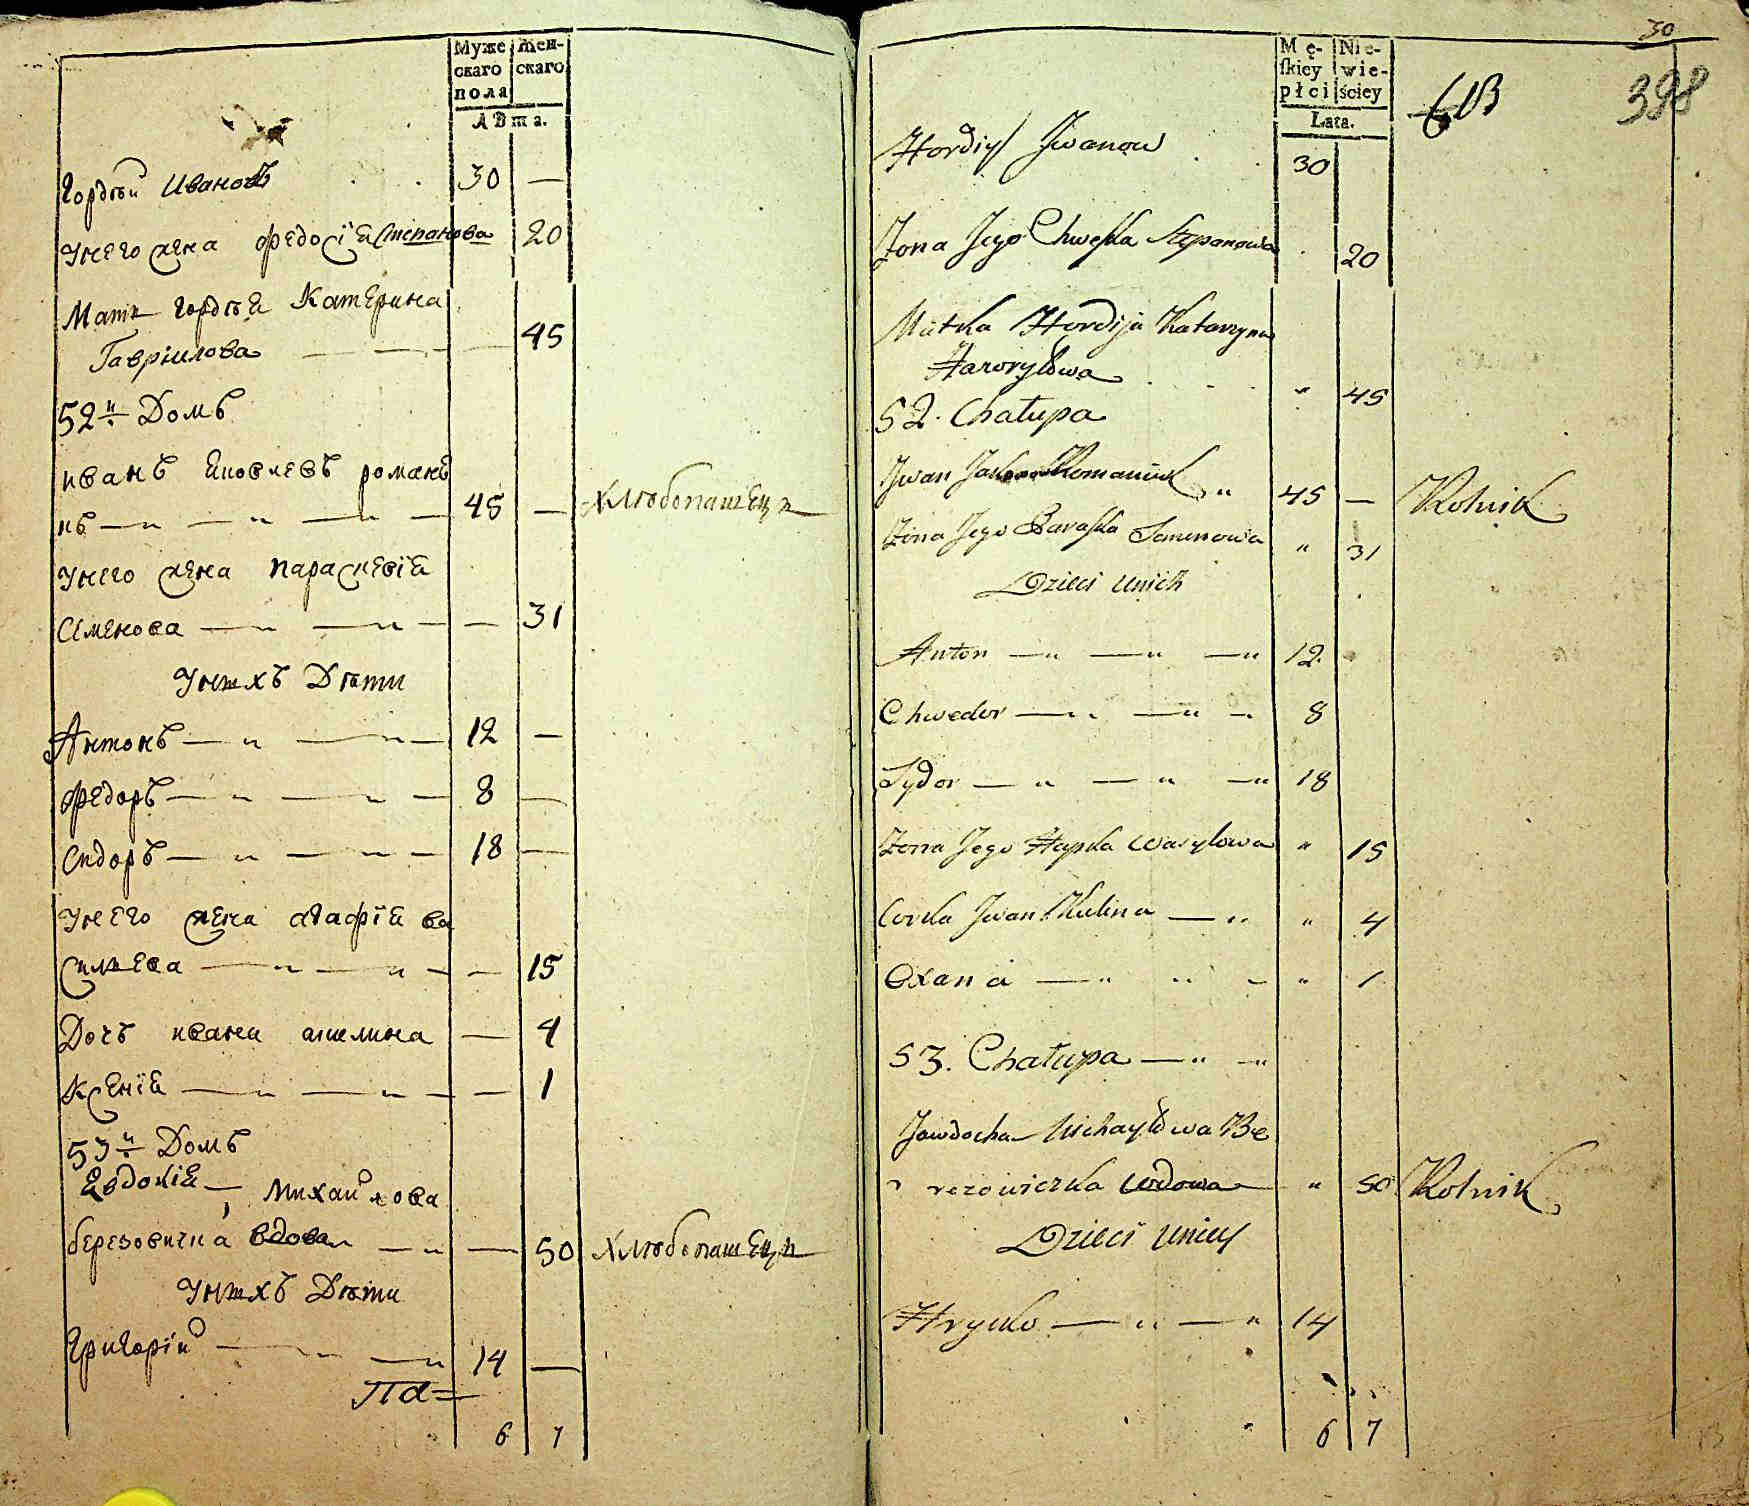 Муже
скаго
пола
Жен-
скаго
Лѣта.
Гордѣй Ивановъ 30 —
Унего жена Федосія Степанова 20
Мать Гордѣя Катерина
Гавриилова — — — 45
52й Домъ
иванъ Яковлевъ романю
къ — „ — „ — „ 45 — Хлѣбопашецъ
Унего жена параскевія
Семенова — „ — „ — — 31
Унихъ Дѣти
Антонъ — „ — „ — 12 —
Федоръ — „ — „ — 8 —
Сидоръ — „ — „ — 18 —
Унего жена агафія ва
сильева — „ — „ — — 15
Дочъ ивана акилина — 4
Ксенія — „ — „ — — 1
53й Домъ
Евдокія — Михайлова
березовичка вдова — „ — 50 Хлѣбопашецъ
Унихъ Дѣти
Григорій — „ — „ 14 —
Па=
6 7
30
398
Mę-
skiey
płci
Nie-
wie-
ściey
Lata.
Hordiy Jwanow 30
Zona Jego Chweska Stepanowa 20
Matka Hordija Katarzyna
Hawryłowa „ 45
52. Chałupa
Jwan Jakow Romaniuk „ 45 — Rolnik
Zona Jego Paraska Semenowa „ 31
Dzieci Unich
Anton — „ — „ — „ 12
Chwedor — „ — „ — 8
Sydor — „ — „ — „ 18
Zona Jego Hapka Wasylowa „ 15
Corka Jwan. Kulina — „ „ 4
Oxana — „ „ — „ 1
53. Chałupa — „ — „
Jawdocha Michayłowa Be
rezowiczka Wdowa — „ 50 Rolnik
Dzieci Uniey
Hryćko — „ — „ 14
6 7